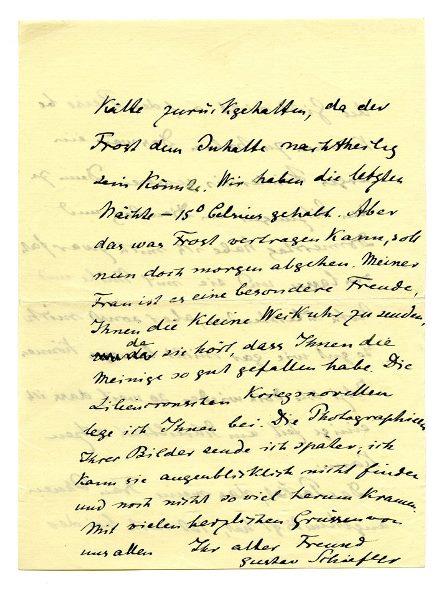 Kälte zurückgehalten, da der
Frost dem Inhalte nachtheilig
sein könnte. Wir haben die letzten
Nächte – 15° Celsius gehabt. Aber
das was Frost vertragen kann, soll
nun doch morgen abgehen. Meiner
Frau ist es eine besondere Freude,
Ihnen die kleine Weckuhr zu senden,
da sie hört, dass Ihnen die
Meinige so gut gefallen habe. Die
Liliencronschen Kriegsnovellen
lege ich Ihnen bei. Die Photographieen
Ihrer Bilder sende ich später, ich
kann sie augenblicklich nicht finden
und noch nicht so viel herum kramen.
Mit vielen herzlichen Grüssen von
uns allen Ihr alter Freund
Gustav Schiefler